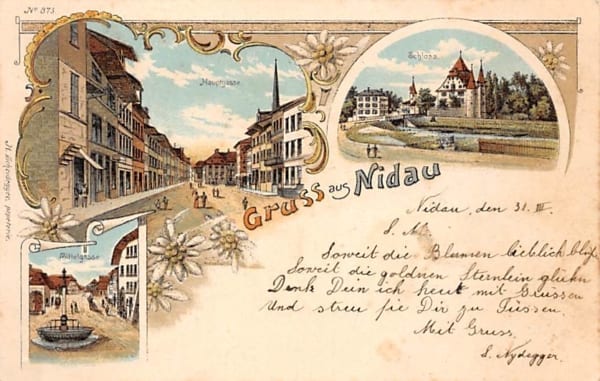 No 873.
Hauptgasse
Schloss
Gruss aus Nidau
Mittelgasse
Nidau, den 31. III.
S. M.
Soweit die Blumen lieblich
Soweit die goldnen Sternlein glühn
Denk Dein ich heut mit Grüssen
Und streu sie Dir zu Füssen.
Mit Gruss
S. Nydegger.